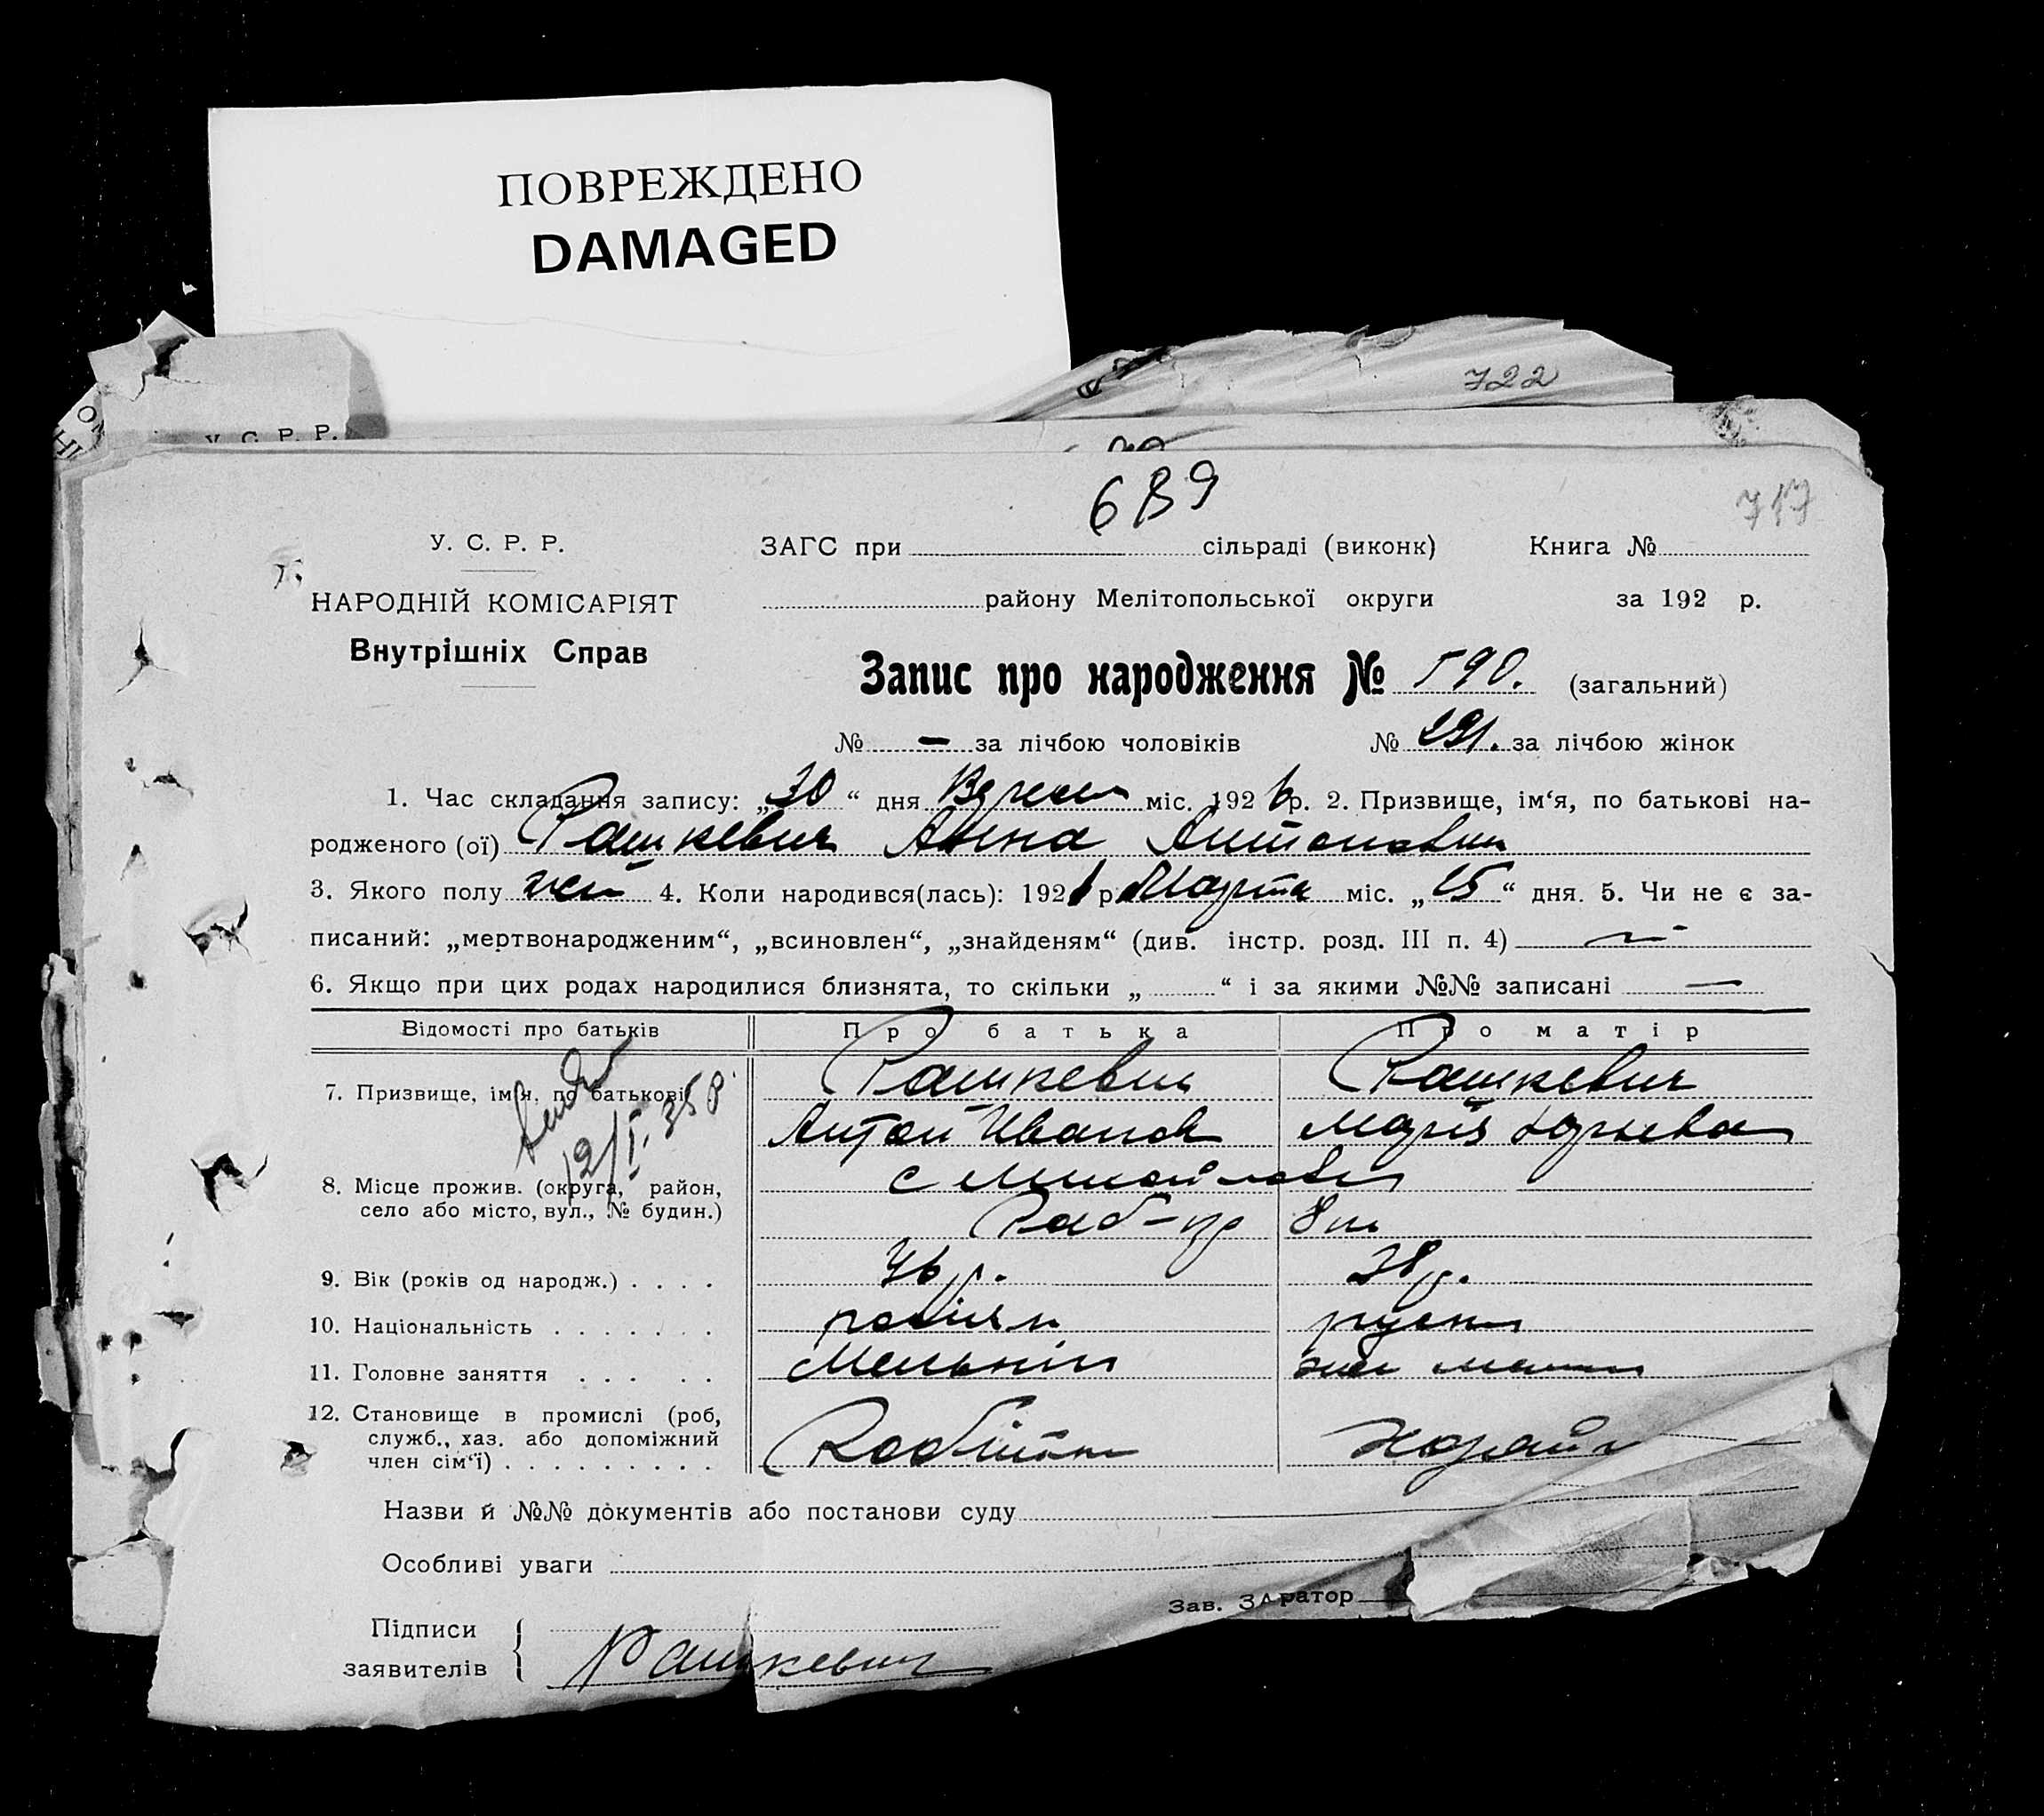 ПОВРЕЖДЕНО
DAMAGED
722
У. С. Р. Р.
689
717
У. С. Р. Р.
ЗАГС при сільраді (виконк) Книга №
НАРОДНІЙ КОМІСАРІЯТ
району Мелітопольської округи за 192 р.
Внутрішніх Справ
Запис про народження № 590. (загальний)
№ — за лічбою чоловіків № 291. за лічбою жінок
1. Час складання запису: „30“ дня міс. 1926 р. 2. Призвище, ім‘я, по батькові на-
родженого (ої) Рашкевич Анна Антоновна
3. Якого полу жен 4. Коли народився(лась): 192 р. Марта міс. „15“ дня. 5. Чи не є за-
писаний: „мертвонародженим“, „всиновлен“, „знайденям“ (див. інстр. розд. III п. 4) —
6. Якщо при цих родах народилися близнята, то скільки „ “ і за якими №№ записані —
Відомості про батьків Про батька Про матір
7. Призвище, ім‘я, по батькові Рашкевич Рашкевич
Антон Иванов Мария Юрьева
12/I 35 р.
8. Місце прожив. (округа, район, с
село або місто, вул., № будин.)
9. Вік (років од народж.) . . . . 46 р. 38 р.
10. Національність . . . . . . .
11. Головне заняття . . . . . Мельник
12. Становище в промислі (роб,
служб., хаз. або допоміжний Робітн
член сім‘ї) . . . . . . . . .
Назви й №№ документів або постанови суду
Особливі уваги
Зав. ЗА ратор
Підписи
заявителів { Рашкевич